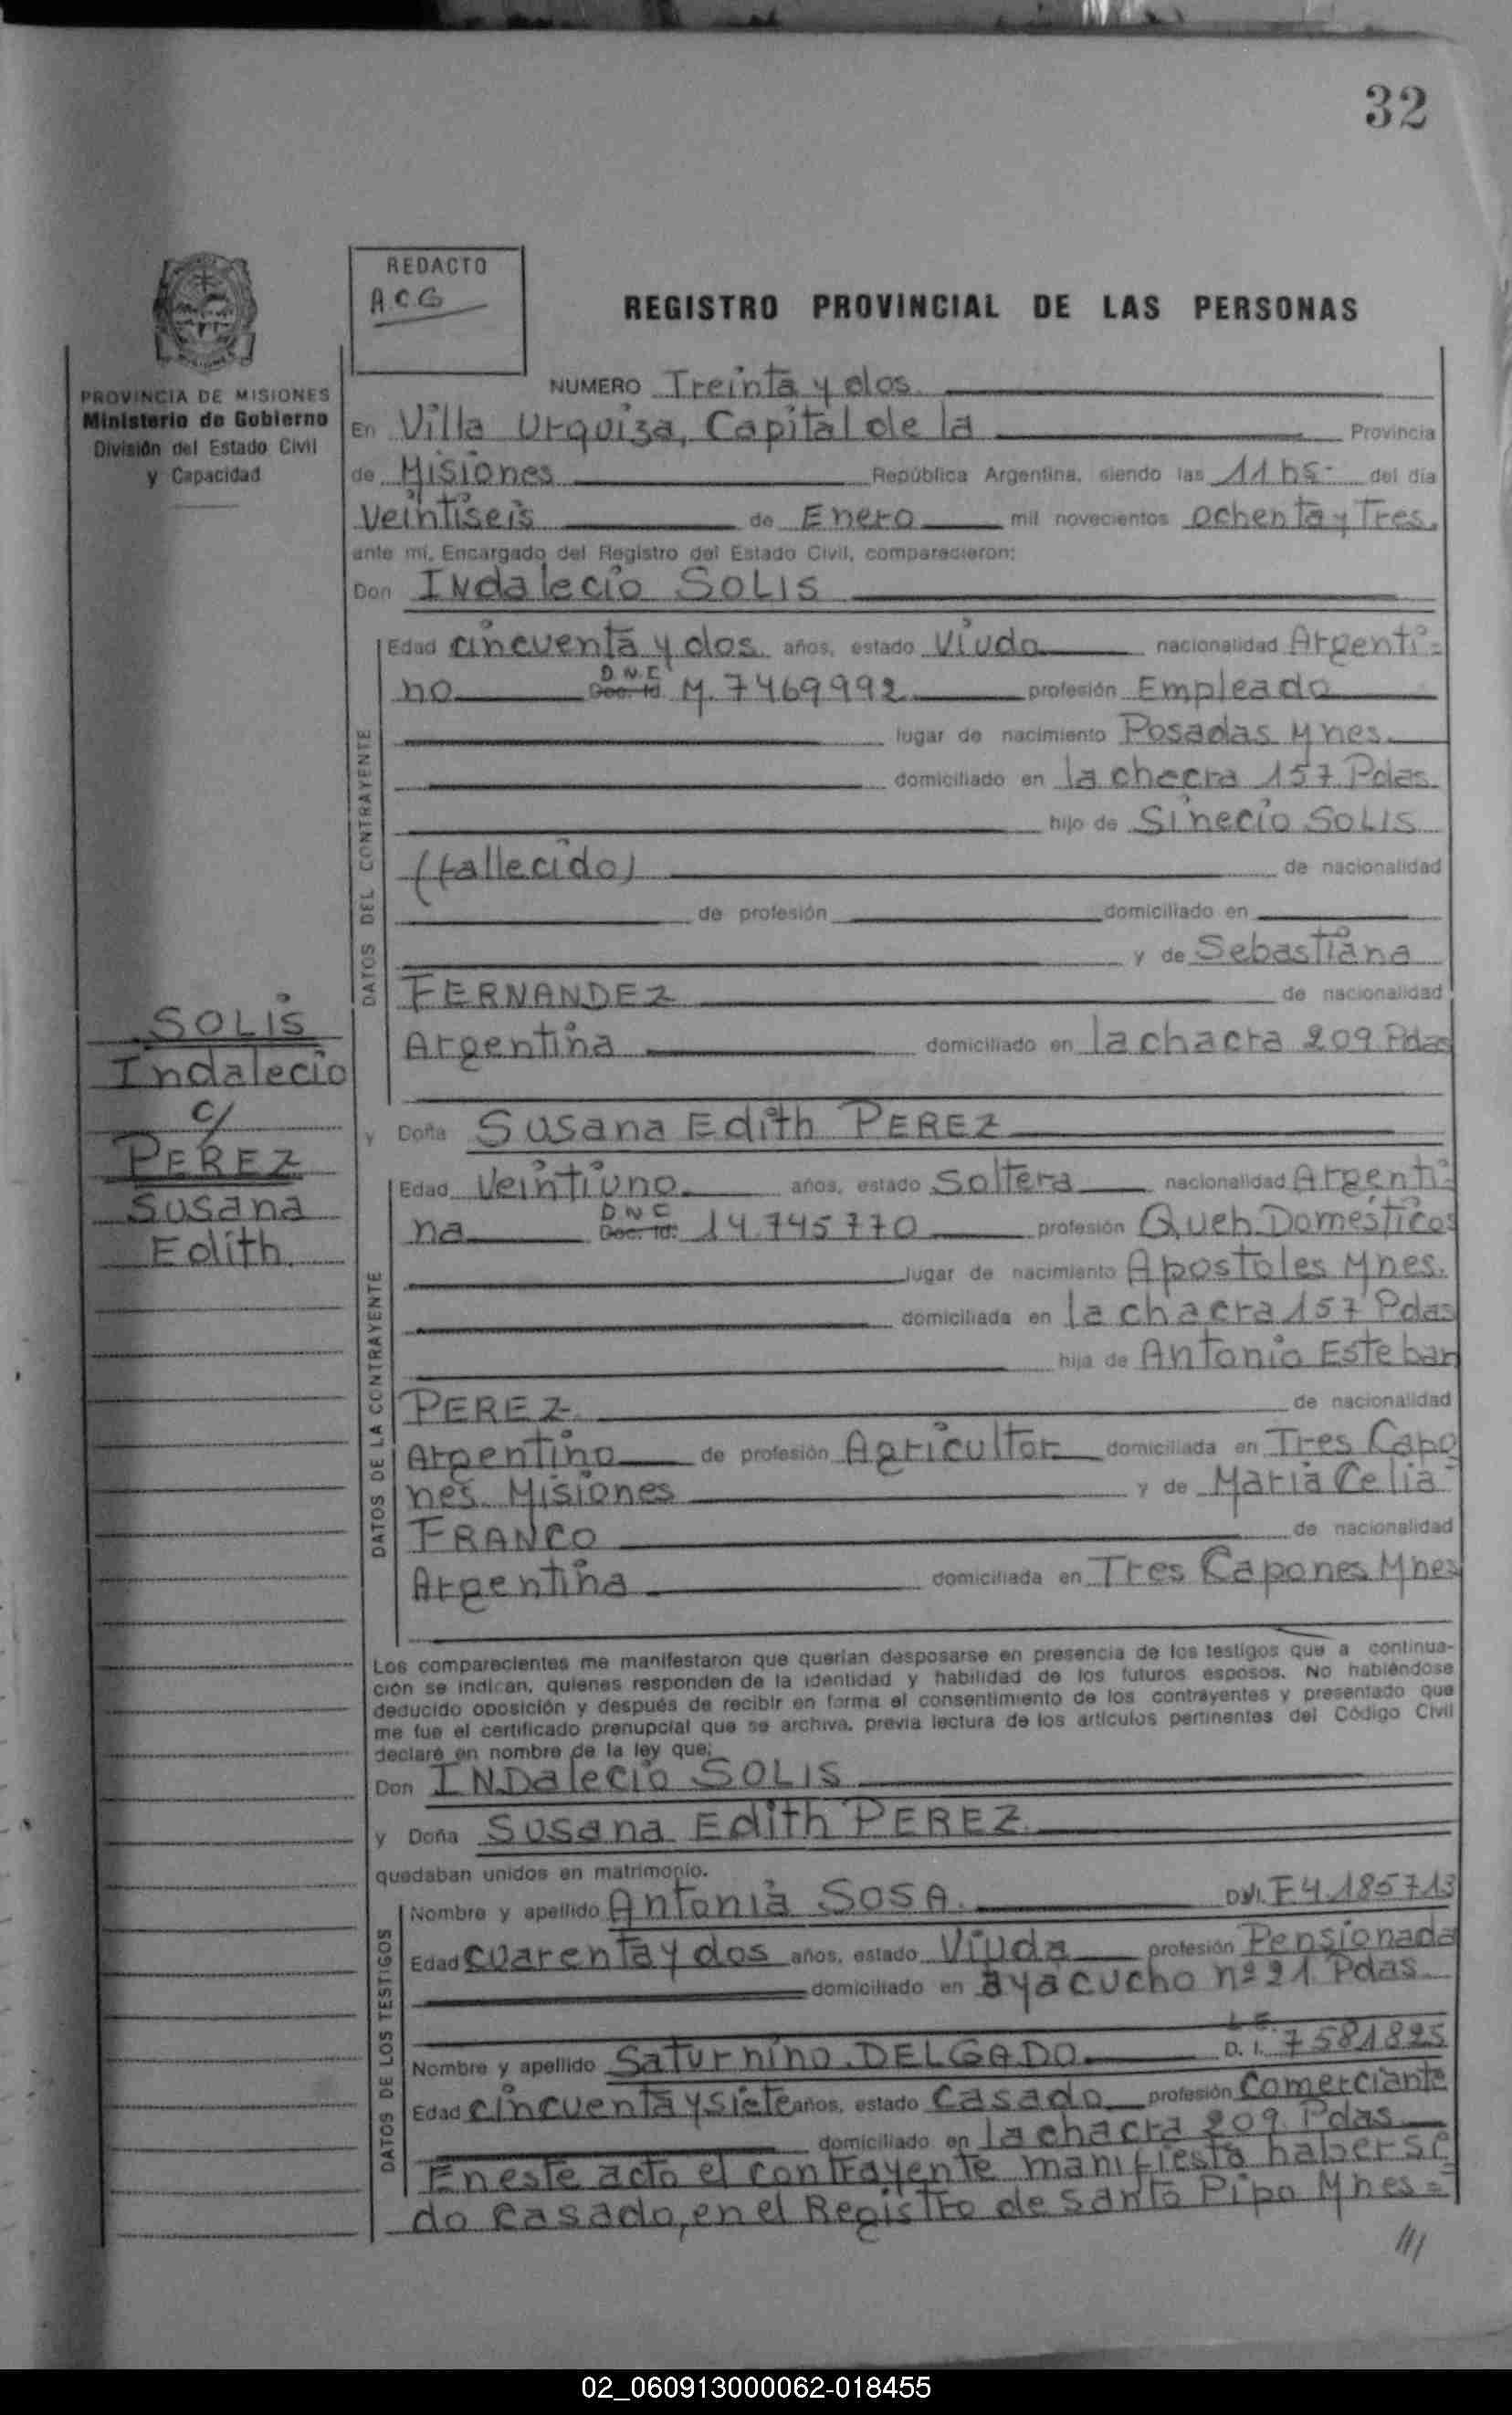 32
REDACTO
A.C.G
REGISTRO PROVINCIAL DE LAS PERSONAS
PROVINCIA DE MISIONES
Ministerio de Gobierno
División del Estado Civil
y Capacidad
NUMERO Treinta y dos
En Villa Urquiza, Capital de la Provincia
de Misiones República Argentina, siendo las 11 hs- del día
Veintiseis de Enero mil novecientos ochenta y Tres.
ante mí, Encargado del Registro del Estado Civil, comparecieron:
Don Indalecio SOLIS
DATOS DEL CONTRAYENTE
Edad cincuenta y dos años, estado Viudo nacionalidad Argenti-
D.N.I
no Doc. Id. M. 7469992 profesión Empleado
lugar de nacimiento Posadas Mnes.
domiciliado en la checra 157 Pdas
hijo de Sinecio SOLIS
(fallecido) de nacionalidad
de profesión domiciliado en
y de Sebastiana
FERNANDEZ de nacionalidad
Argentina domiciliado en la chacra 209 Pdas
SOLIS
Indalecio
c/
PEREZ
Susana
Edith.
y Doña Susana Edith PEREZ
DATOS DE LA CONTRAYENTE
Edad Veintiuno años, estado Soltera nacionalidad Argenti-
D N C
na Doc. Id. 14.745770 profesión Queh. Domésticos
lugar de nacimiento Apostoles Mnes.
domiciliada en la chacra 157 Pdas
hija de Antonio Esteban
PEREZ de nacionalidad
Argentino de profesión Agricultor domiciliada en Tres Capo
nes Misiones y de Maria Celia
FRANCO de nacionalidad
Argentina domiciliada en Tres Capones Mnes
Los comparecientes me manifestaron que querían desposarse en presencia de los testigos que a continua-
ción se indican, quienes responden de la identidad y habilidad de los futuros esposos. No habiéndose
deducido oposición y después de recibir en forma el consentimiento de los contrayentes y presentado que
me fue el certificado prenupcial que se archiva, previa lectura de los artículos pertinentes del Código Civil
declaré en nombre de la ley que:
Don INDalecio SOLIS
y Doña Susana Edith PEREZ
quedaban unidos en matrimonio.
DATOS DE LOS TESTIGOS
Nombre y apellido Antonia SOSA. D.N.I. F4.185713
Edad cuarenta y dos años, estado Viuda profesión Pensionada
domiciliado en ayacucho nº 21 Pdas
L.E.
Nombre y apellido Saturnino DELGADO D. I. 7581825
Edad cincuenta y siete años, estado Casado profesión Comerciante
domiciliado en la chacra 209 Pdas
En este acto el contrayente manifiesta haber si
do casado, en el Registro de Santo Pipo Mnes=
///
02_060913000062-018455